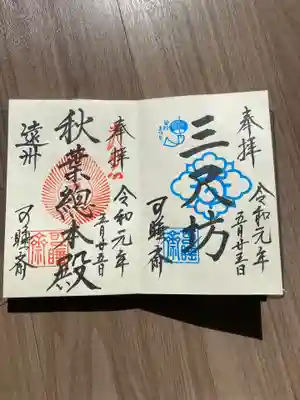 奉拝
三尺坊
令和元年
五月廿五日
可睡斎
奉拝
秋葉總本殿
遠州
令和元年
五月廿五日
可睡斎